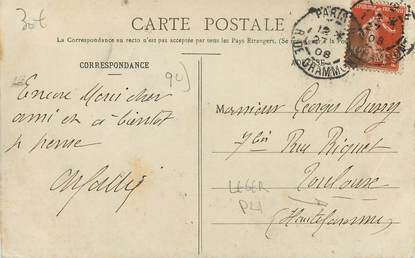 30€
CARTE POSTALE
La Correspondance au recto n'est pas acceptée par tous les Pays Etrangers. (Se
CORRESPONDANCE
90)
Encore Merci cher
ami et a bientôt
je pense
PARIS
12
27
08
R. DE GRAMMONT
Monsieur Georges
7 bis Rue Riquet
Toulouse
(Haute Garonne)
LEGER